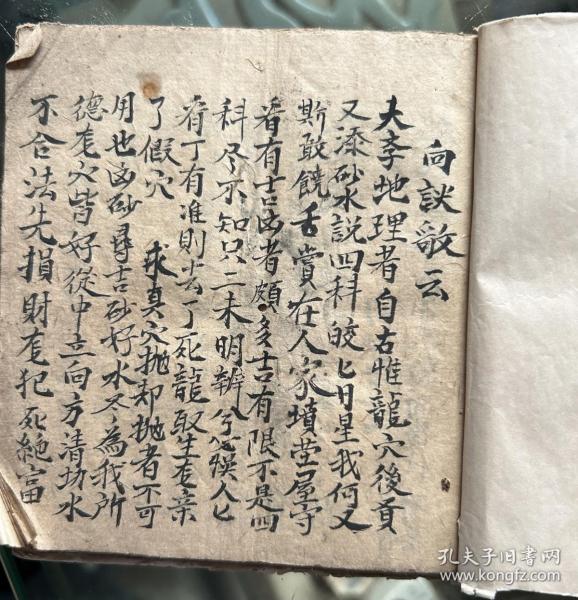 向談敬云
夫李地理者自古惟龍穴後貢
又添砂水説四科皎匕日星我何又
斯敢饒舌賞在人家墳塋屋守
看有吉凶者頗多吉有限不是四
科尽不知只二未明辨兮必悮人匕
看丁有准則去了死龍取生
了假穴 求真穴抛却抛者不可
用也凶砂尋吉砂好水尽為我所
德穴皆好從中立向方清坊水
不合法先損財犯死絶富
孔夫子旧书网
www.kongfz.com